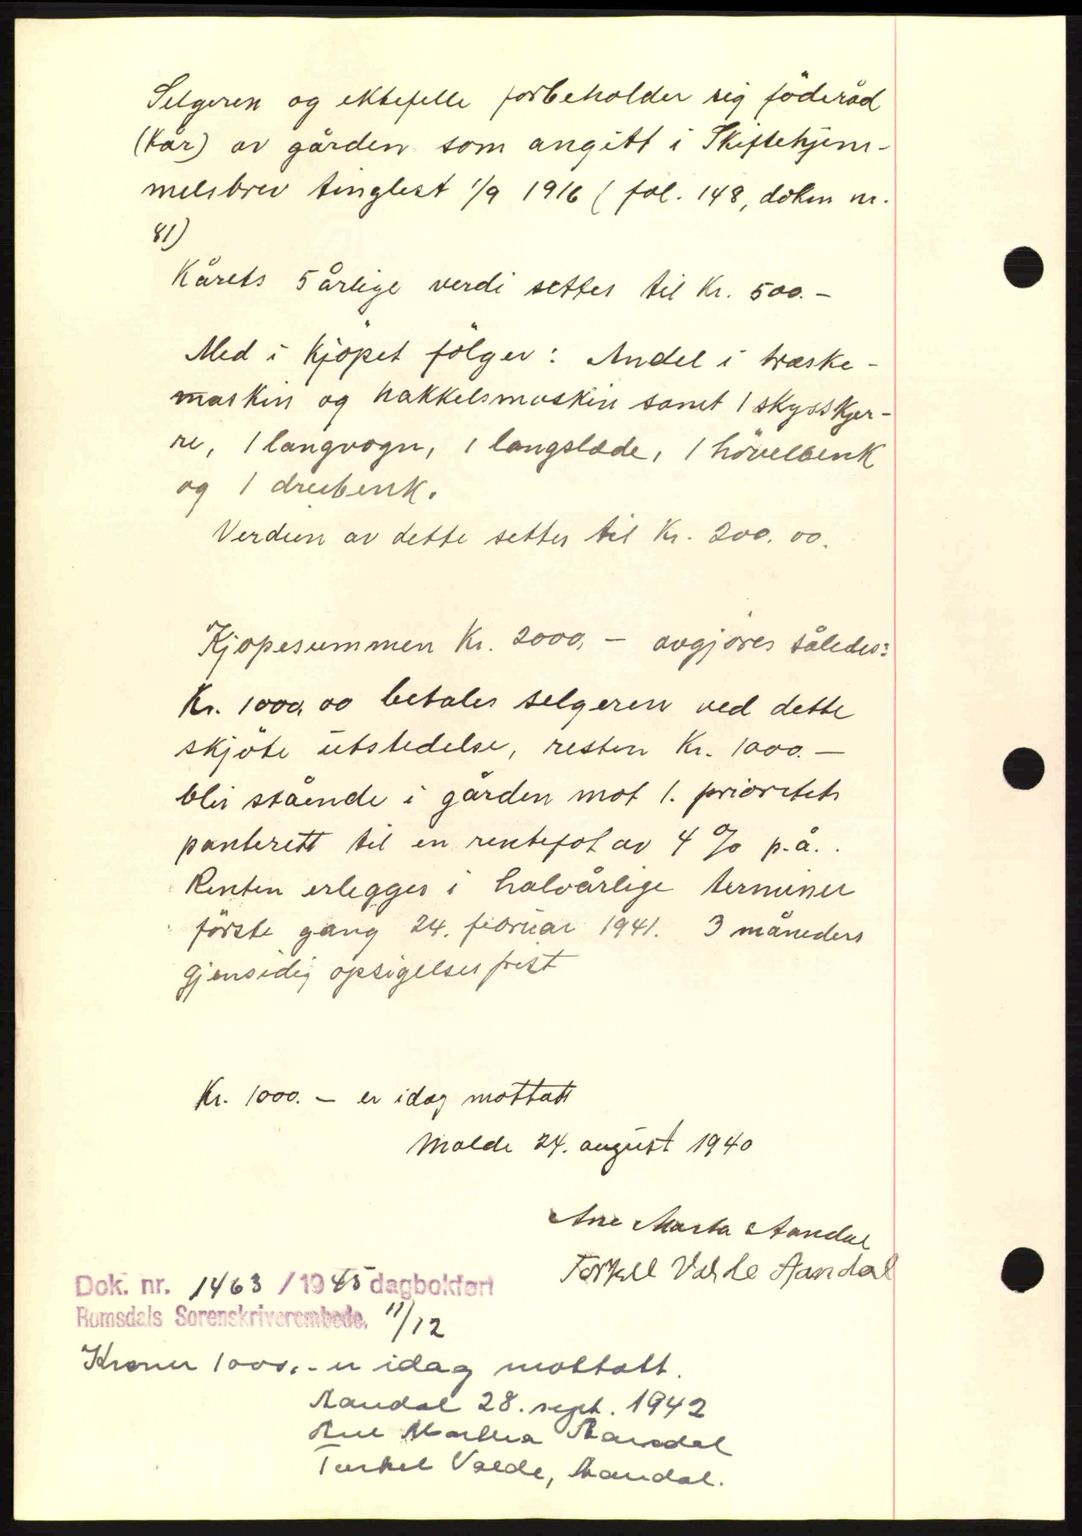 Selgeren og ektefelle forbeholder sig föderåd
(kår) av gården som angitt i Skiftehjem-
melsbrev tinglest 1/9 1916 ( fol. 148, dokm nr.
81)
Kårets 5 årlige verdi settes til Kr. 500.-
Med i kjöpet fölger: Andel i træske-
maskin og hakkelsmaskin samt 1 skysskjer-
re, 1 langvogn, 1 langslæde, 1 hövelbenk
og 1 dreibenk.
Verdien av dette settes til Kr. 200.00.
Kjöpesummen Kr. 2000,- avgjöres således:
Kr. 1000,00 betales selgeren ved dette
skjöte utstedelse, resten Kr. 1000.-
blir stående i gården mot 1. prioritets
panterett til en rentefot av 4 % p.å..
Renten erlegges i halvårlige terminer
förste gang 24. februar 1941. 3 måneders
gjensidig opsigelsesfrist
Kr. 1000.- er idag mottatt
Molde 24. august 1940
Ane Marta Aandal
Torkell Valde Aandal
Dok. nr. 1463 / 1945 dagbokført
Romsdals Sorenskriverembede. 11/12
Kroner 1000,- er idag mottatt.
Aandal 28. sept. 1942
Ane Martha Aandal
Torkel Valde, Aandal.